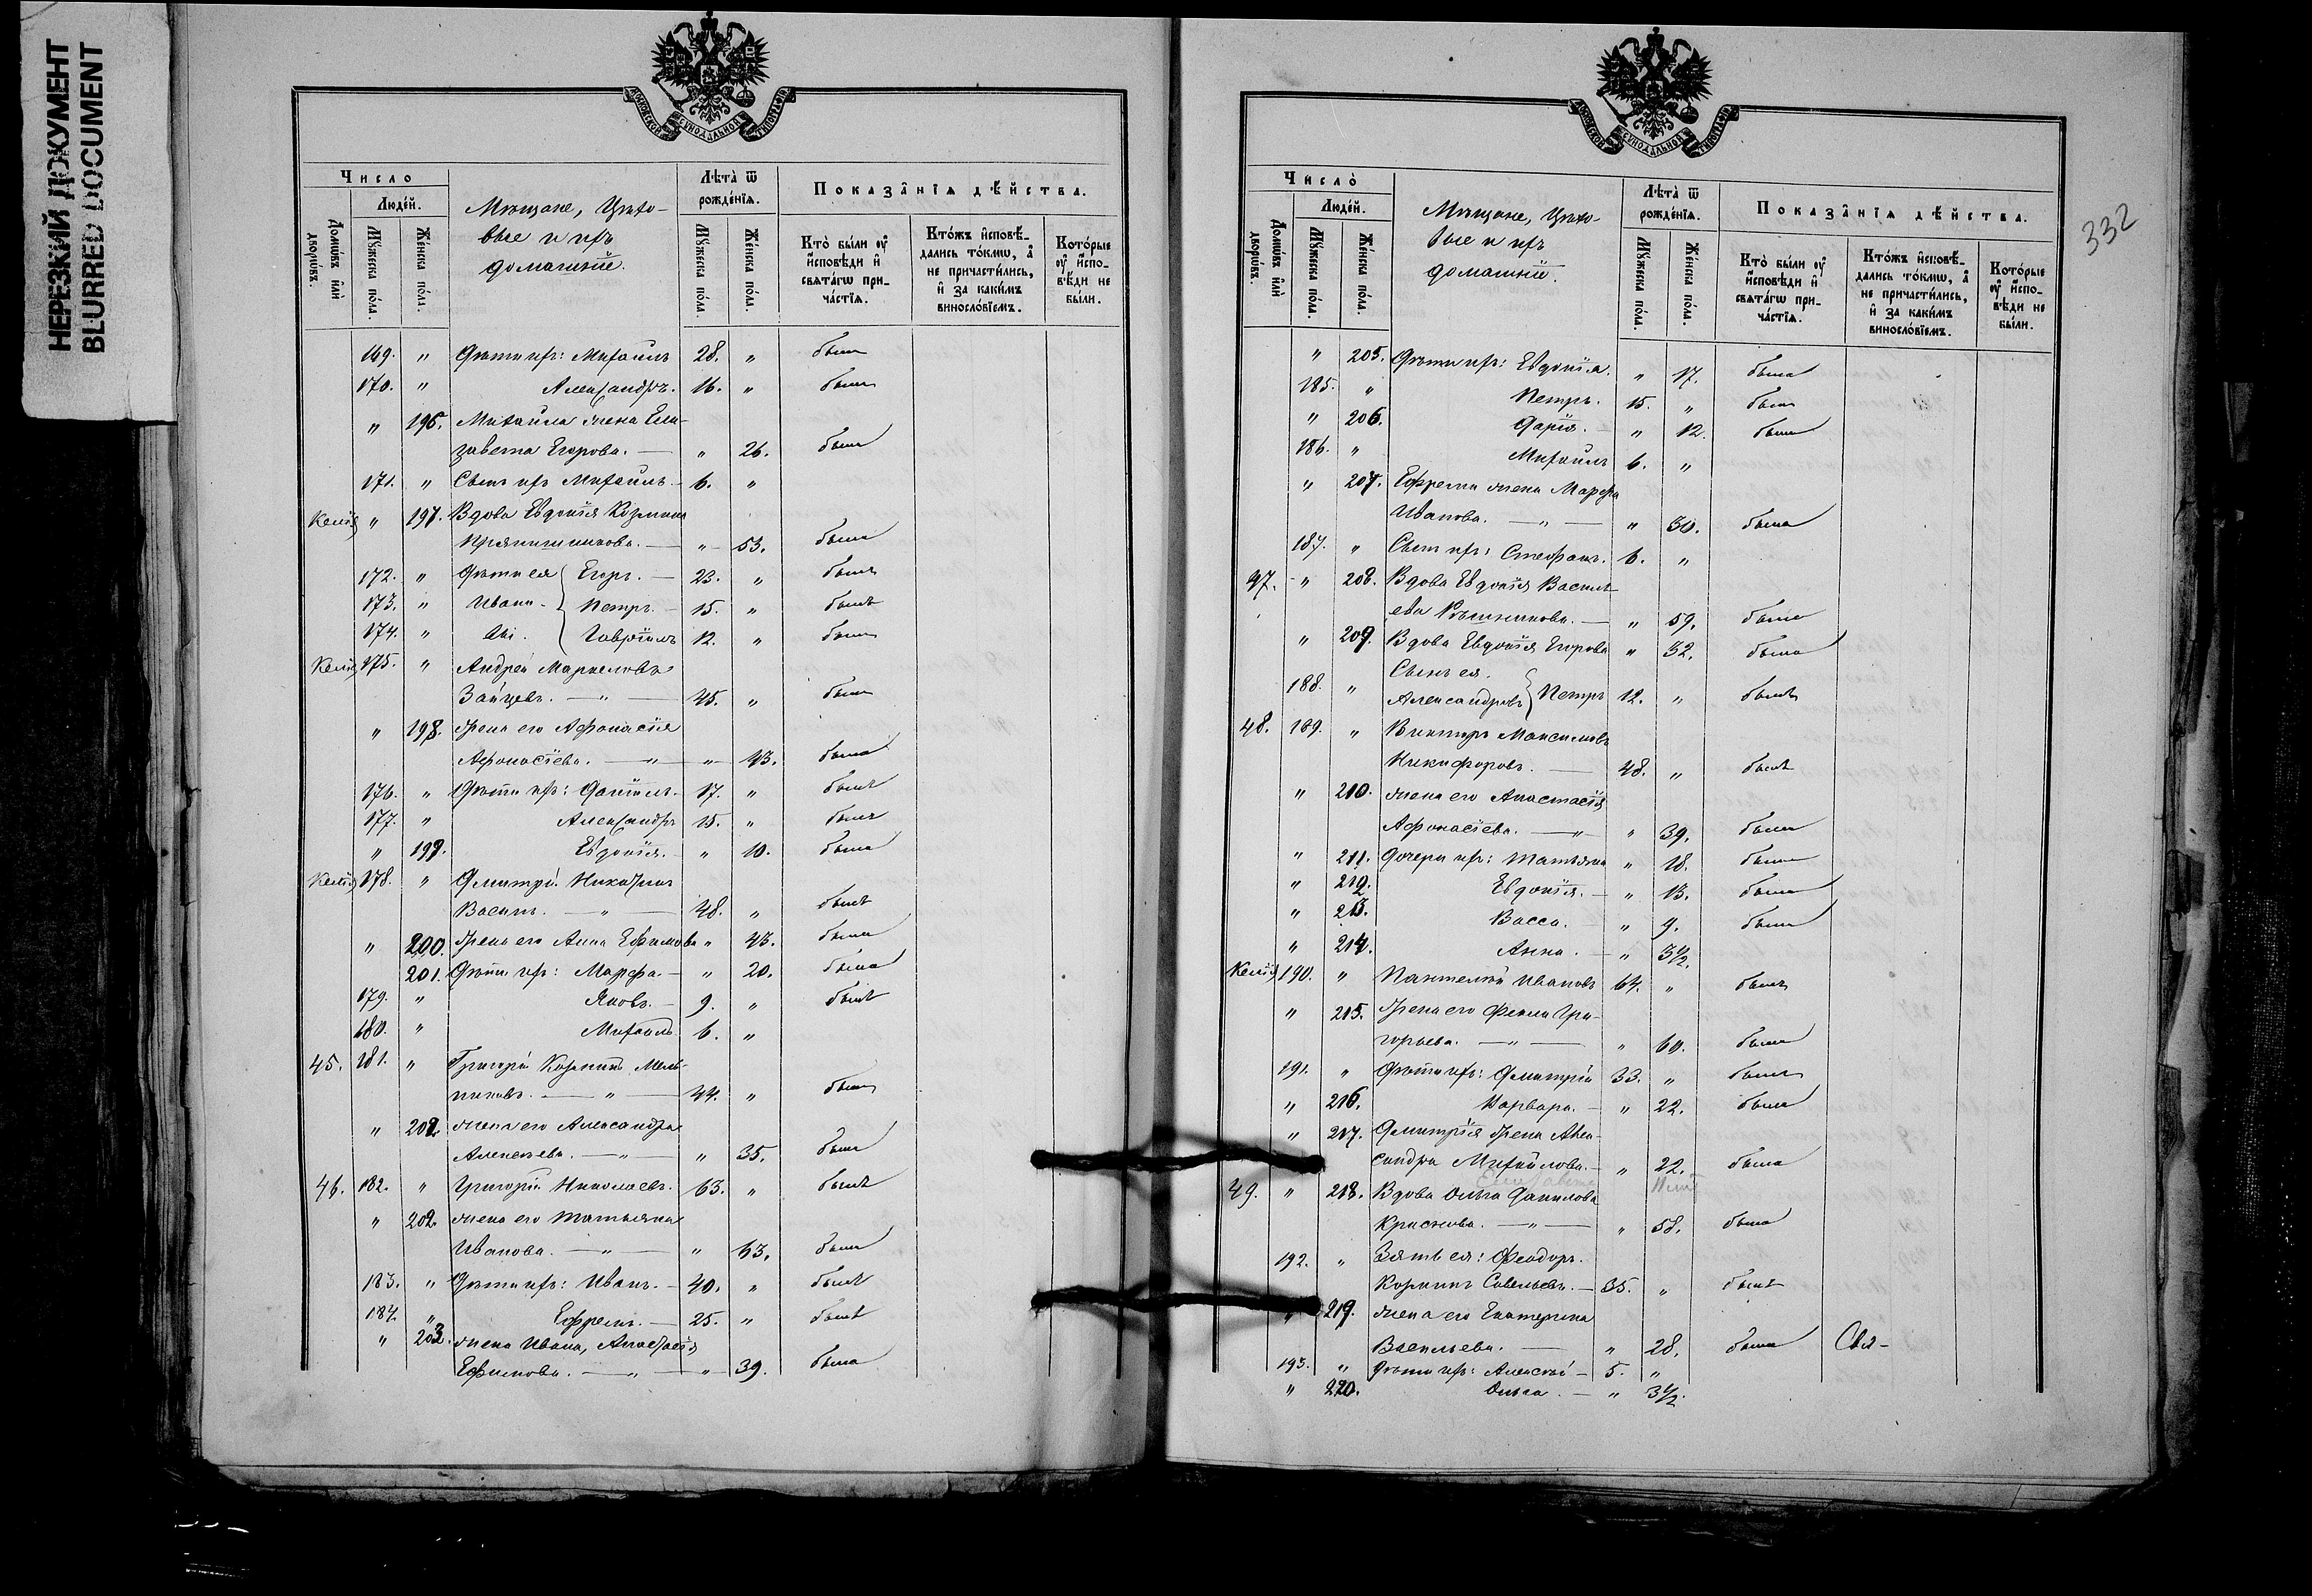 НЕРЕЗКИЙ ДОКУМЕНТ
BLURRED DOCUMENT
МОСКОВСКОЙ СѴНОДАЛЬНОЙ ТИПОГРАФІИ
Число
Людей.
Домѡвъ или дворѡвъ.
Мꙋжеска пола.
Женска пола.
Мѣщане, Цѣхо-
вые и ихъ
домашніе.
Лѣта ѿ рожденїѧ.
Мꙋжеска пола
Женска пола.
Показанїѧ дѣйства.
Кто были оу исповѣди и свѧтагѡ причастїѧ.
Ктожъ исповѣдались токмѡ, а не причастились, и за какимъ винословїемъ.
Которые оу исповѣди не были.
169. " Дѣти ихъ: Михаилъ 28. " былъ
170. " Александръ. 16. " былъ
" 196. Михаила жена Ели-
завета Егорова. — " 26. была
171. " Сынъ ихъ Михаилъ. 6. "
Келія " 197. Вдова Евдокія Козмина
Прянишникова. — " 53. была
172. " Дѣти ея Егоръ. — 23. " былъ
173. " Ивано- Петръ. — 15. " былъ
174. " вы. Гавріилъ 12. " былъ
Келія 175. " Андрей Маркеловъ
Зайцевъ. — " — 45. " былъ
" 198. Жена его Афанасія
Афонасіева. — " — " 43. была
176. " Дѣти ихъ: Даніилъ. 17. " былъ
177. " Александръ 15. " былъ
" 199. Евдокія. " 10. была
Келія 178. " Дмитрій
48. " былъ
" 200. Жена его Анна Ефимова " 43. была
201. Дѣти ихъ: Марфа. — " 20. была
179. " Яковъ. — 9. " былъ
180. " Михаилъ 6. "
45. 181. " Григорій Козминъ Мель-
никовъ. — " — 44. " былъ
" 202. жена его Александра
Алексеева. — " — " 35. была
46. 182. " Григорій Николаевъ. 63. " былъ
" 202. жена его Татьяна
Иванова. — " — " 63. была
183. " Дѣти ихъ: Иванъ. — 40. " былъ
184. " Ефремъ. — 25. " былъ
" 203. жена Ивана,
Ефимова. — " — " 39. была
332
МОСКОВСКОЙ СѴНОДАЛЬНОЙ ТИПОГРАФІИ
Число
Людей.
Домѡвъ или дворѡвъ.
Мꙋжеска пола.
Женска пола.
Мѣщане, Цѣхо-
вые и ихъ
домашніи.
Лѣта ѿ рожденїѧ.
Мꙋжеска пола.
Женска пола.
Показанїѧ дѣйства.
Кто были оу исповѣди и свѧтагѡ причастїѧ.
Ктожъ исповѣдались токмѡ, а не причастились, и за какимъ винословїемъ.
Которые оу исповѣди не были.
" 205. Дѣти ихъ: Евдокія. " 17. была
185. " Петръ. 15. " былъ
" 206. Дарія. — " 12. была
186. " Михаилъ 6. "
" 207. Ефрема жена Марфа
Иванова. — " — " 30. была
187. " Сынъ ихъ: Стефанъ. 6. "
47. " 208. Вдова Евдокія Василь-
ева — " 59. была
" 209. Вдова Евдокія Егорова " 32. была
Сынъ ея.
188. " Александровъ Петръ 12. " былъ
48. 189. " Викторъ Максимовъ
Никифоровъ. — 48. " былъ
" 210. жена его Анастасія
Афонасіева. — " " 39. была
" 211. Дочери ихъ: Татьяна " 18. была
" 212. Евдокія. — " 13. была
" 213. Васса. — " 9. была
" 214. Анна. — " 3½.
Келія 190. " Пантелей Ивановъ 64. " былъ
" 215. Жена его Фекла Гри-
горьева. — " — " 60. была
191. " Дѣти ихъ: Дмитрій 33. " былъ
" 216. Варвара. — " 22. была
" 217. Дмитрія Жена Алек-
сандра Михайлова. — " 22. была
49. " 218. Вдова Ольга Данилова
Краснова. — " — " 58. была
192. " Зять ея: Феодоръ
Козминъ Савельевъ. — 35. " былъ
" 219. жена его Екатерина
Васильева. — " 28. была
193. " Дѣти ихъ: Алексѣй — 5. "
" 220. Ольга. — " 3½.